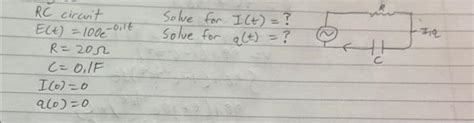 RC circuit Solve for I(t) = ? R
E(t) = 100e^-0.1t Solve for q(t) = ?
R = 20Ω
C = 0.1F C
I(0) = 0
q(0) = 0